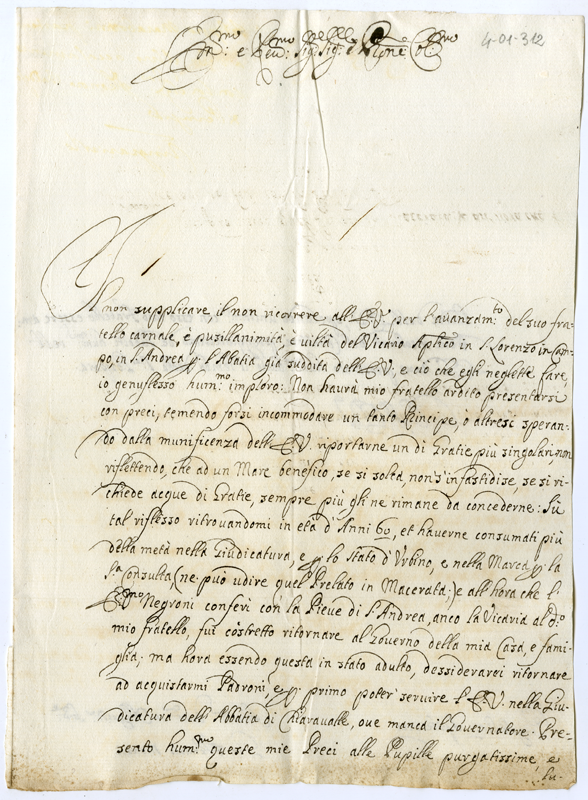 4-01-312
Em:mo e Rev:mo Sig: Sig: e Pne Col:mo
Il non supplicare, il non ricorrere all'E.V. per l'avanzam:to del suo fra-
tello carnale, è pusillanimità, è viltà del Vicario Aplico in S. Lorenzo in Cam-
po, in S. Andrea p l'Abatia già suddita dell'E.V., e ciò che egli neglette fare,
io genuflesso hum:mo imploro: Non havrà mio fratello ardito presentarsi
con preci, temendo forsi incommodare un tanto Principe, ò altresi speran-
do dalla munificenza dell'E.V. riportarne un dì Gratie più singolari, non
riflettendo, che ad un Mare benefico, se si solca, non s'infastidisce, se si ri-
chiede acque di Gratie, sempre più gli ne rimane da concederne: Sù
tal riflesso ritrovandomi in età d'Anni 60, et haverne consumati più
della metà nella Giudicatura, e p lo stato d'Urbino, e nella Marca p la
S.a Consulta (ne può udire quel Prelato in Macerata:) e all'hora che l'
E:mo Negroni conferì con la Pieve di S. Andrea, anco la Vicaria al d:o
mio fratello, fui costretto ritornare al Governo della mia Casa, e fami-
glia; ma hora essendo questa in stato adulto, dessiderarei ritornare
ad acquistarmi Padroni, e p primo poter servire l'E.V. nella Giu-
dicatura dell'Abbatia di Chiaravalle, ove manca il Governatore. Pre-
sento hum:mo queste mie Preci alle Pupille purgatissime e